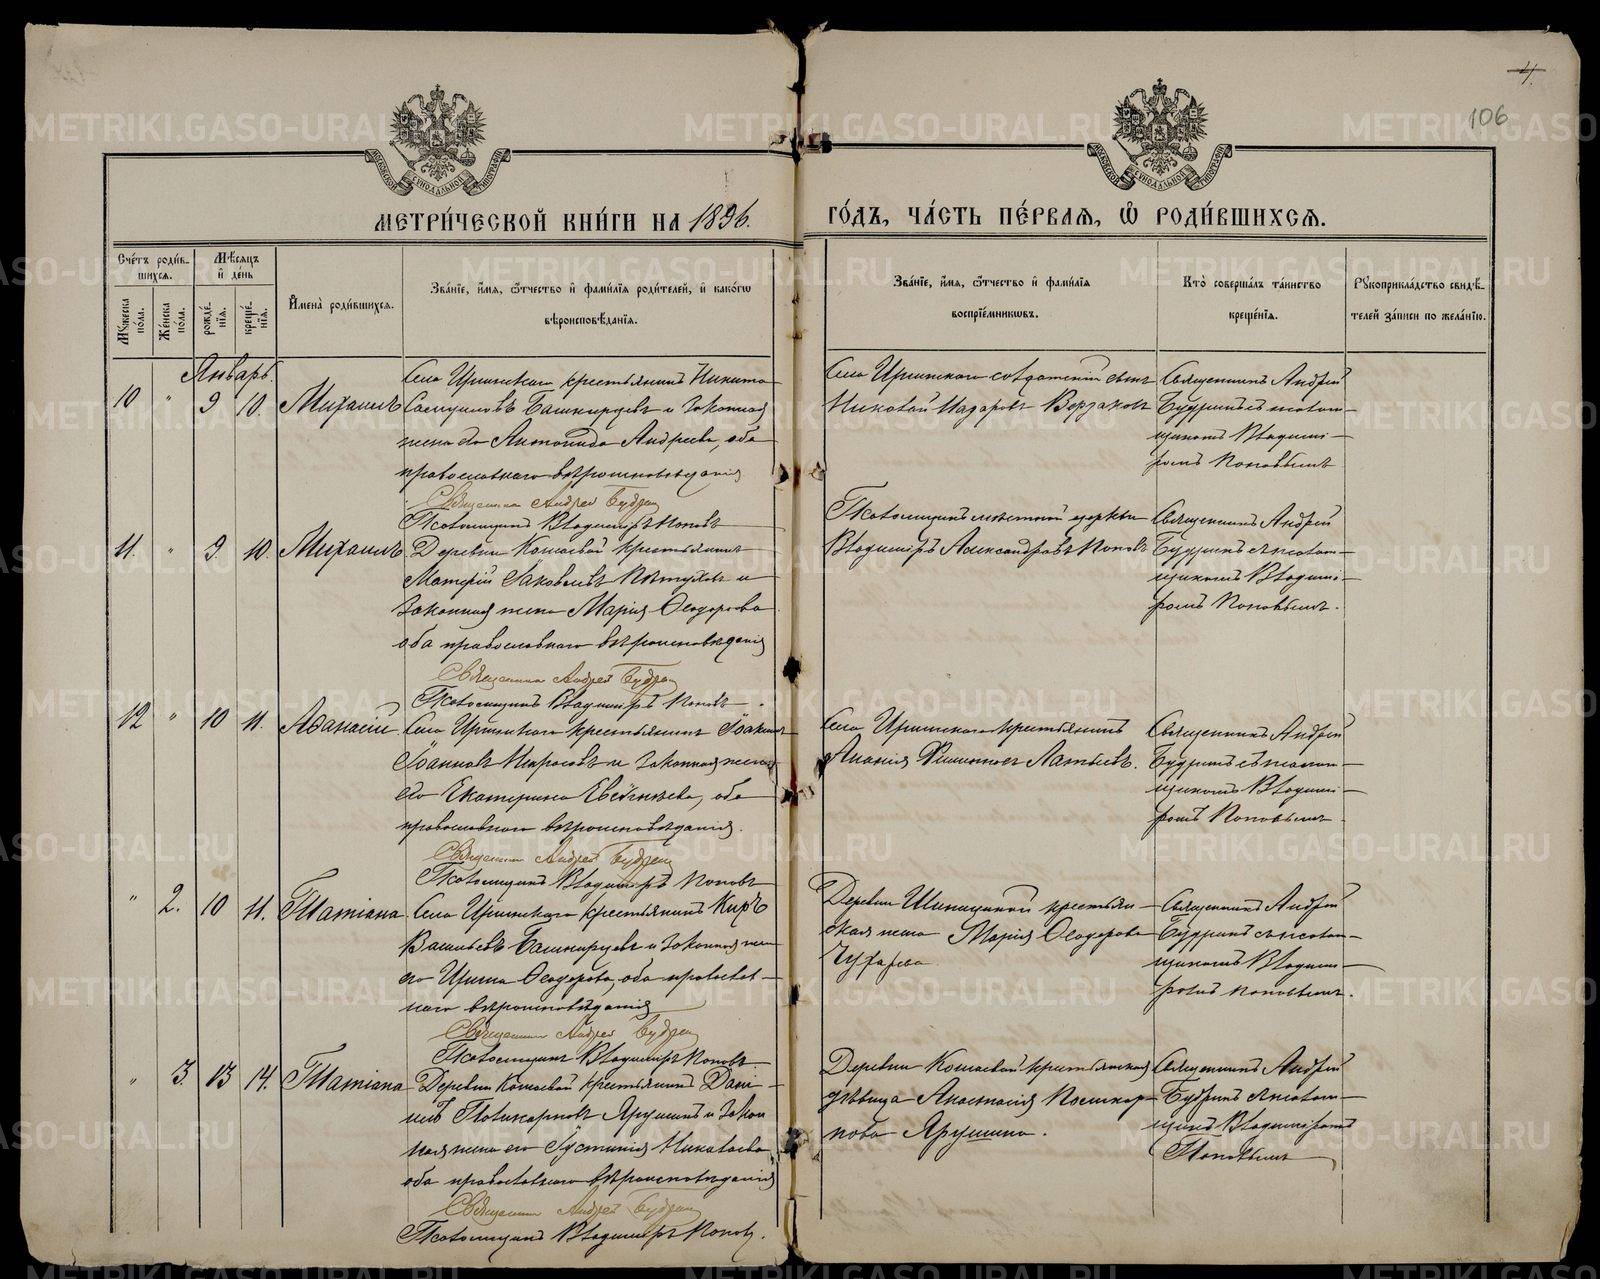 4.
106
МОСКОВСКОЙ СѴНОДАЛЬНОЙ ТИПОГРАФІИ
МОСКОВСКОЙ СѴНОДАЛЬНОЙ ТИПОГРАФІИ
МЕТРИ́ЧЕСКОЙ КНИ́ГИ НА 1896.
ГО́ДЪ, ЧА́СТЬ ПЕ́РВАѦ, Ѽ РОДИ́ВШИХСѦ.
Сче́тъ роди́в-
шихсѧ.
Мѣ́сѧцъ
и҆ де́нь
Мꙋ́жеска по́ла.
Же́нска по́ла.
рожде́-
нїѧ.
креще́-
нїѧ.
И҆мена̀ роди́вшихсѧ.
Зва́нїе, и҆́мѧ, ѻ҆́тчество и҆ фами́лїѧ роди́телей, и҆ како́гѡ
вѣроисповѣ́данїѧ.
Зва́нїе, и҆́мѧ, ѻ҆́тчество и҆ фами́лїѧ
воспрїе́мникѡвъ.
Кто̀ соверша́лъ та́инство
креще́нїѧ.
Рꙋкоприкла́дство свидѣ́-
телей за́писи по жела́нїю.
Январь.
10 " 9 10. Михаилъ
Села Иргинскаго крестьянинъ Никита
Самуиловъ Башкирцевъ и законная
жена его Антонида Андреева, оба
православнаго вѣроисповѣданія
Священникъ Андрей Будринъ
Псаломщикъ Владиміръ Поповъ
Села Иргинскаго солдатскій сынъ
Николай Назаровъ Верзаковъ
Священникъ Андрей
Будринъ съ псалом-
щикомъ Владимі-
ромъ Поповымъ
11. " 9. 10. Михаилъ
Деревни Кошаевой крестьянинъ
Матѳій Іаковлевъ Пѣтуховъ и
законная жена Марія Ѳеодорова
оба православнаго вѣроисповѣданія
Священникъ Андрей Будринъ
Псаломщикъ Владиміръ Поповъ.
Псаломщикъ мѣстной церкви
Владиміръ Александровъ Поповъ
Священникъ Андрей
Будринъ съ псалом-
щикомъ Владимі-
ромъ Поповымъ.
12 " 10 11. Аѳанасій
Села Иргинскаго крестьянинъ Іоакимъ
Іоанновъ Некрасовъ и законная жена
его Екатерина Евгеньева, оба
православнаго вѣроисповѣданія.
Священникъ Андрей Будринъ
Псаломщикъ Владиміръ Поповъ
Села Иргинскаго крестьянинъ
Ананія Филипповъ Латышевъ.
Священникъ Андрей
Будринъ съ псалом-
щикомъ Владимі-
ромъ Поповымъ
" 2. 10 11. Татіана
Села Иргинскаго крестьянинъ Киръ
Васильевъ Башкирцевъ и законная жена
его Ирина Ѳеодорова, оба православ-
наго вѣроисповѣданія
Священникъ Андрей Будринъ
Псаломщикъ Владиміръ Поповъ
Деревни Шипицыной крестьян-
ская жена Марія Ѳеодорова
Чухарева
Священникъ Андрей
Будринъ съ псалом-
щикомъ Владими-
ромъ Поповымъ.
" 3. 13 14. Татіана
Деревни Кошаевой крестьянинъ Дані-
илъ Поликарповъ Ярушинъ и закон
ная жена его Іустинія Николаева
оба православнаго вѣроисповѣданія
Священникъ Андрей Будринъ
Псаломщикъ Владиміръ Поповъ.
Деревни Кошаевой крестьянская
дѣвица Анастасія Поликар-
пова Ярушина.
Священникъ Андрей
Будринъ съ псалом-
щикъ Владиміромъ
Поповымъ